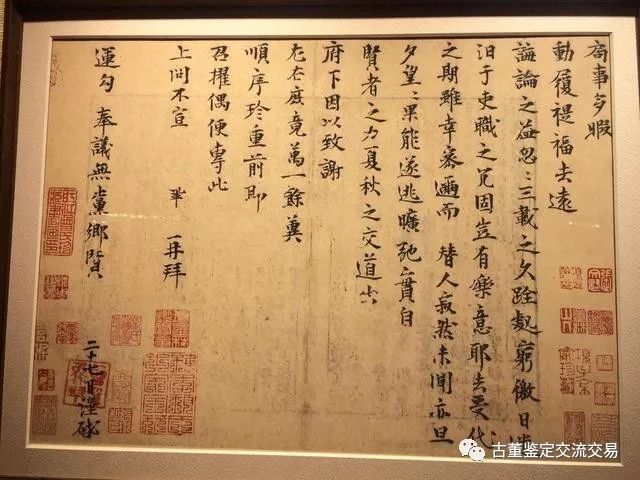 局事多暇
動履禔福去遠
誨論之益忽〻三載之久跧處窮徼日迷
汨于吏職之冗固豈有樂意耶去受代
之期雖幸密邇而替人寂然未聞亦旦
夕望〻果能遂逃曠弛實自
賢者之力夏秋之交道出
府下因以致謝
左右庶竟萬一餘冀
順序珍重前即
召擢偶便專此
上問不宣 鞏 再拜
運勾奉議無黨鄉賢 二十七日謹啟
古董鉴定交流交易